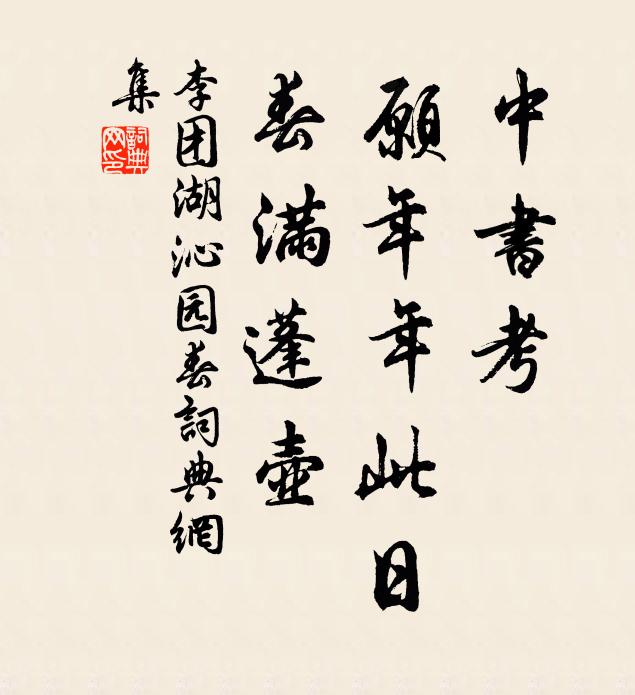 中書考
願年年此日
春滿蓬壺
李团湖沁园春詞典網
集
詞典
网印